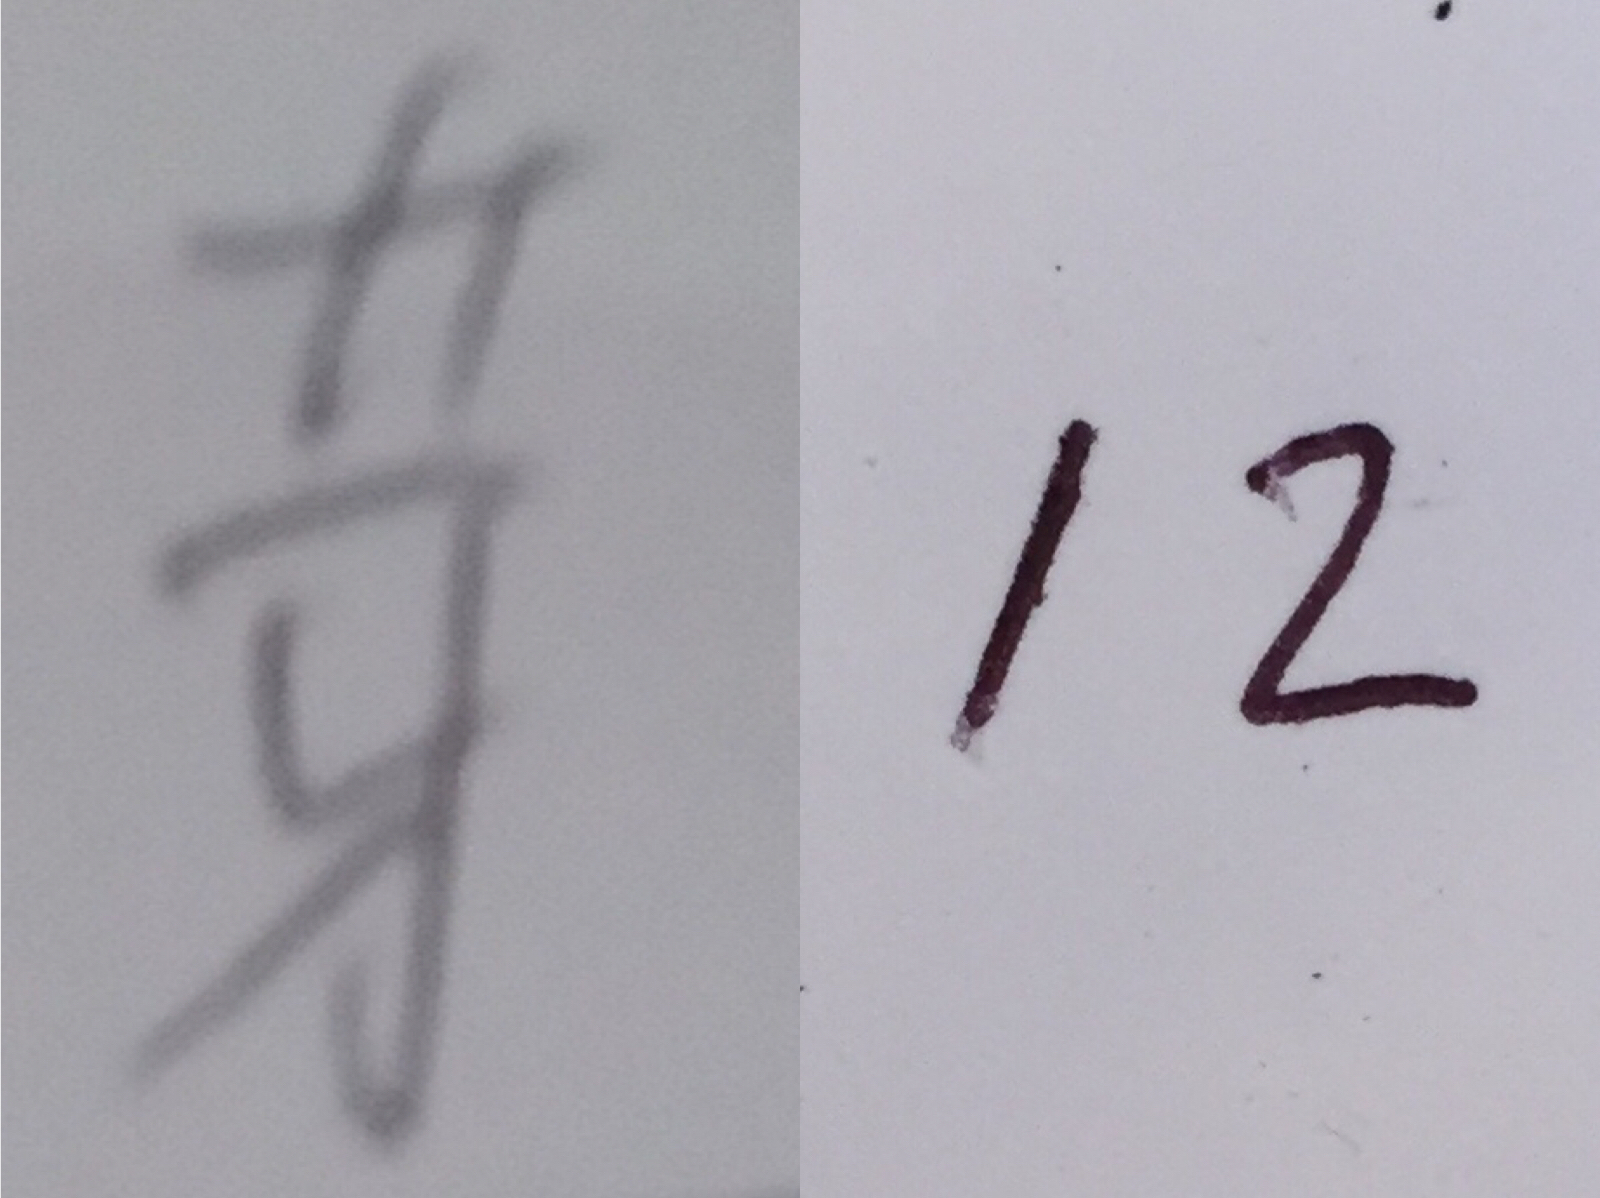 芽
12